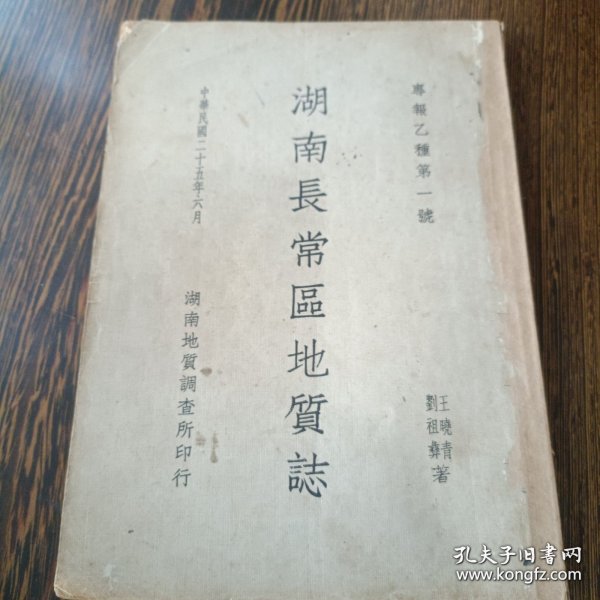 專報乙種第一號
王曉青
劉祖彝
著
湖南長常區地質誌
中華民國二十五年六月
湖南地質調查所印行
孔夫子旧书网
www.kongfz.com